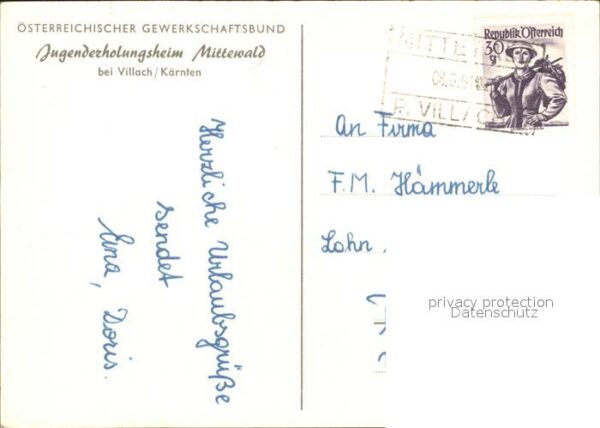 ÖSTERREICHISCHER GEWERKSCHAFTSBUND
Jugenderholungsheim Mittewald
bei Villach/Kärnten
Herzliche Urlaubsgrüße
sendet
Doris.
Republik Österreich
30
g
An Firma
F.M. Hämmerle
Lohn
privacy protection
Datenschutz